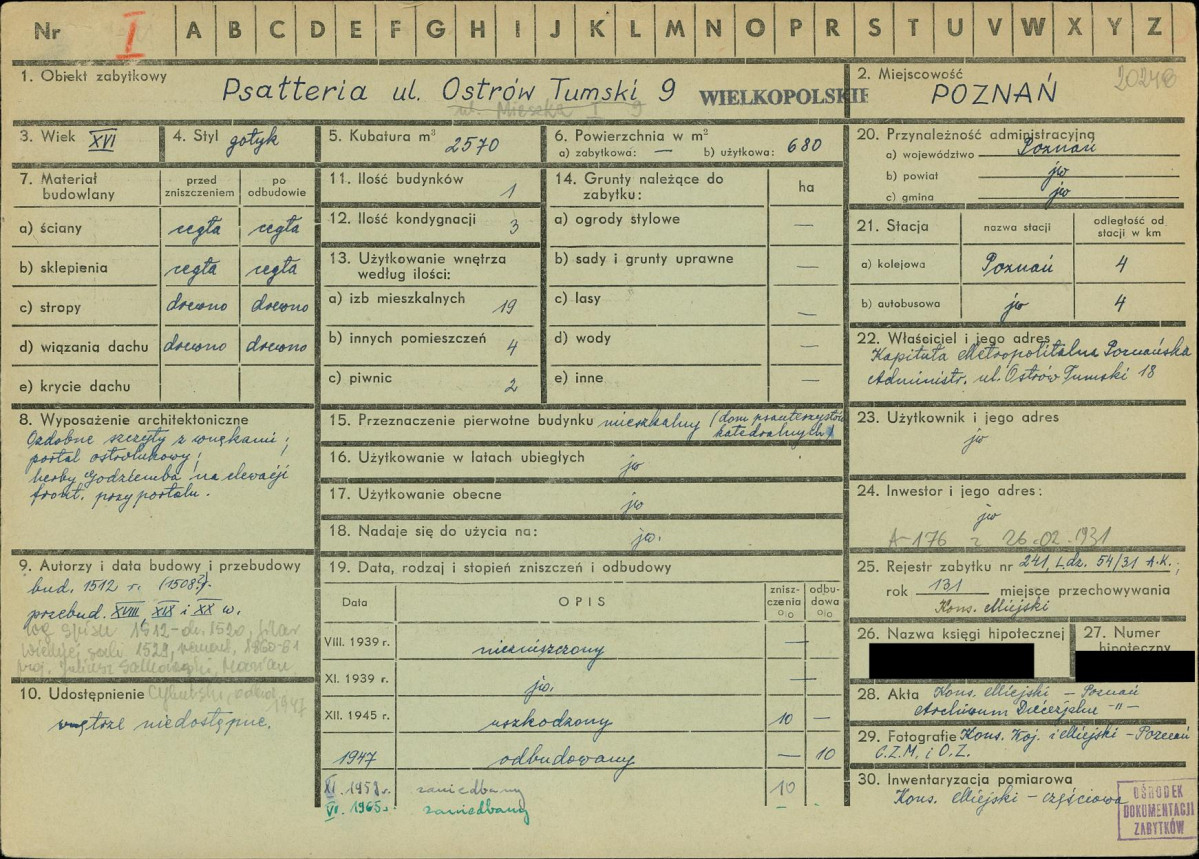 Nr I A B C D E F G H I J K L M N O P R S T U V W X Y Z
1. Obiekt zabytkowy
Psałteria ul. Ostrów Tumski 9 WIELKOPOLSKIE
ul. Mieszka I 9
2. Miejscowość
POZNAŃ
3. Wiek XVI
4. Styl gotyk
5. Kubatura m³ 2570
6. Powierzchnia w m²
a) zabytkowa: — b) użytkowa: 680
7. Materiał budowlany
przed zniszczeniem
po odbudowie
a) ściany cegła cegła
b) sklepienia cegła cegła
c) stropy drewno drewno
d) wiązania dachu drewno drewno
e) krycie dachu
8. Wyposażenie architektoniczne
Ozdobne szczyty z wnękami;
portal ostrołukowy;
herby Godziemba na elewacji
front. przy portalu.
9. Autorzy i data budowy i przebudowy
bud. 1512 r. (1508?).
przebud. XVIII, XIX i XX w.
wg spisu 1512-dr. 1520, filar
wielkiej sali 1528, remont, 1960-61
proj. Juliusz Marian
Cybulski, odbud.
1947
10. Udostępnienie
wnętrze niedostępne.
11. Ilość budynków 1
12. Ilość kondygnacji 3
13. Użytkowanie wnętrza
według ilości:
a) izb mieszkalnych 19
b) innych pomieszczeń 4
c) piwnic 2
14. Grunty należące do
zabytku:
ha
a) ogrody stylowe —
b) sady i grunty uprawne —
c) lasy —
d) wody —
e) inne —
15. Przeznaczenie pierwotne budynku mieszkalny (dom psałterzystów
katedralnych)
16. Użytkowanie w latach ubiegłych jw
17. Użytkowanie obecne jw
18. Nadaje się do użycia na: jw.
19. Data, rodzaj i stopień zniszczeń i odbudowy
Data OPIS znisz-czenia % odbu-dowa %
VIII. 1939 r. niezniszczony —
XI. 1939 r. jw. —
XII. 1945 r. uszkodzony 10 —
1947 odbudowany — 10
XI. 1958 r. zaniedbany 10
VI. 1965 r. zaniedbany –
20. Przynależność administracyjna
a) województwo Poznań
b) powiat jw
c) gmina jw
21. Stacja
nazwa stacji
odległość od stacji w km
a) kolejowa Poznań 4
b) autobusowa jw 4
22. Właściciel i jego adres
Kapituła Metropolitalna Poznańska
Administr. ul. Ostrów Tumski 18
23. Użytkownik i jego adres
jw
24. Inwestor i jego adres:
jw
A-176 z 26.02.1931
25. Rejestr zabytku nr 241, L.dz. 54/31 A.K.;
rok 131 miejsce przechowywania
Kons. Miejski
26. Nazwa księgi hipotecznej
27. Numer
hipoteczny
28. Akta Kons. Miejski – Poznań
Archiwum Diecezjalne –"–
29. Fotografie Kons. Woj. i Miejski – Poznań
C.Z.M. i O.Z.
30. Inwentaryzacja pomiarowa
Kons. Miejski – częściowa
OŚRODEK
DOKUMENTACJI
ZABYTKÓW